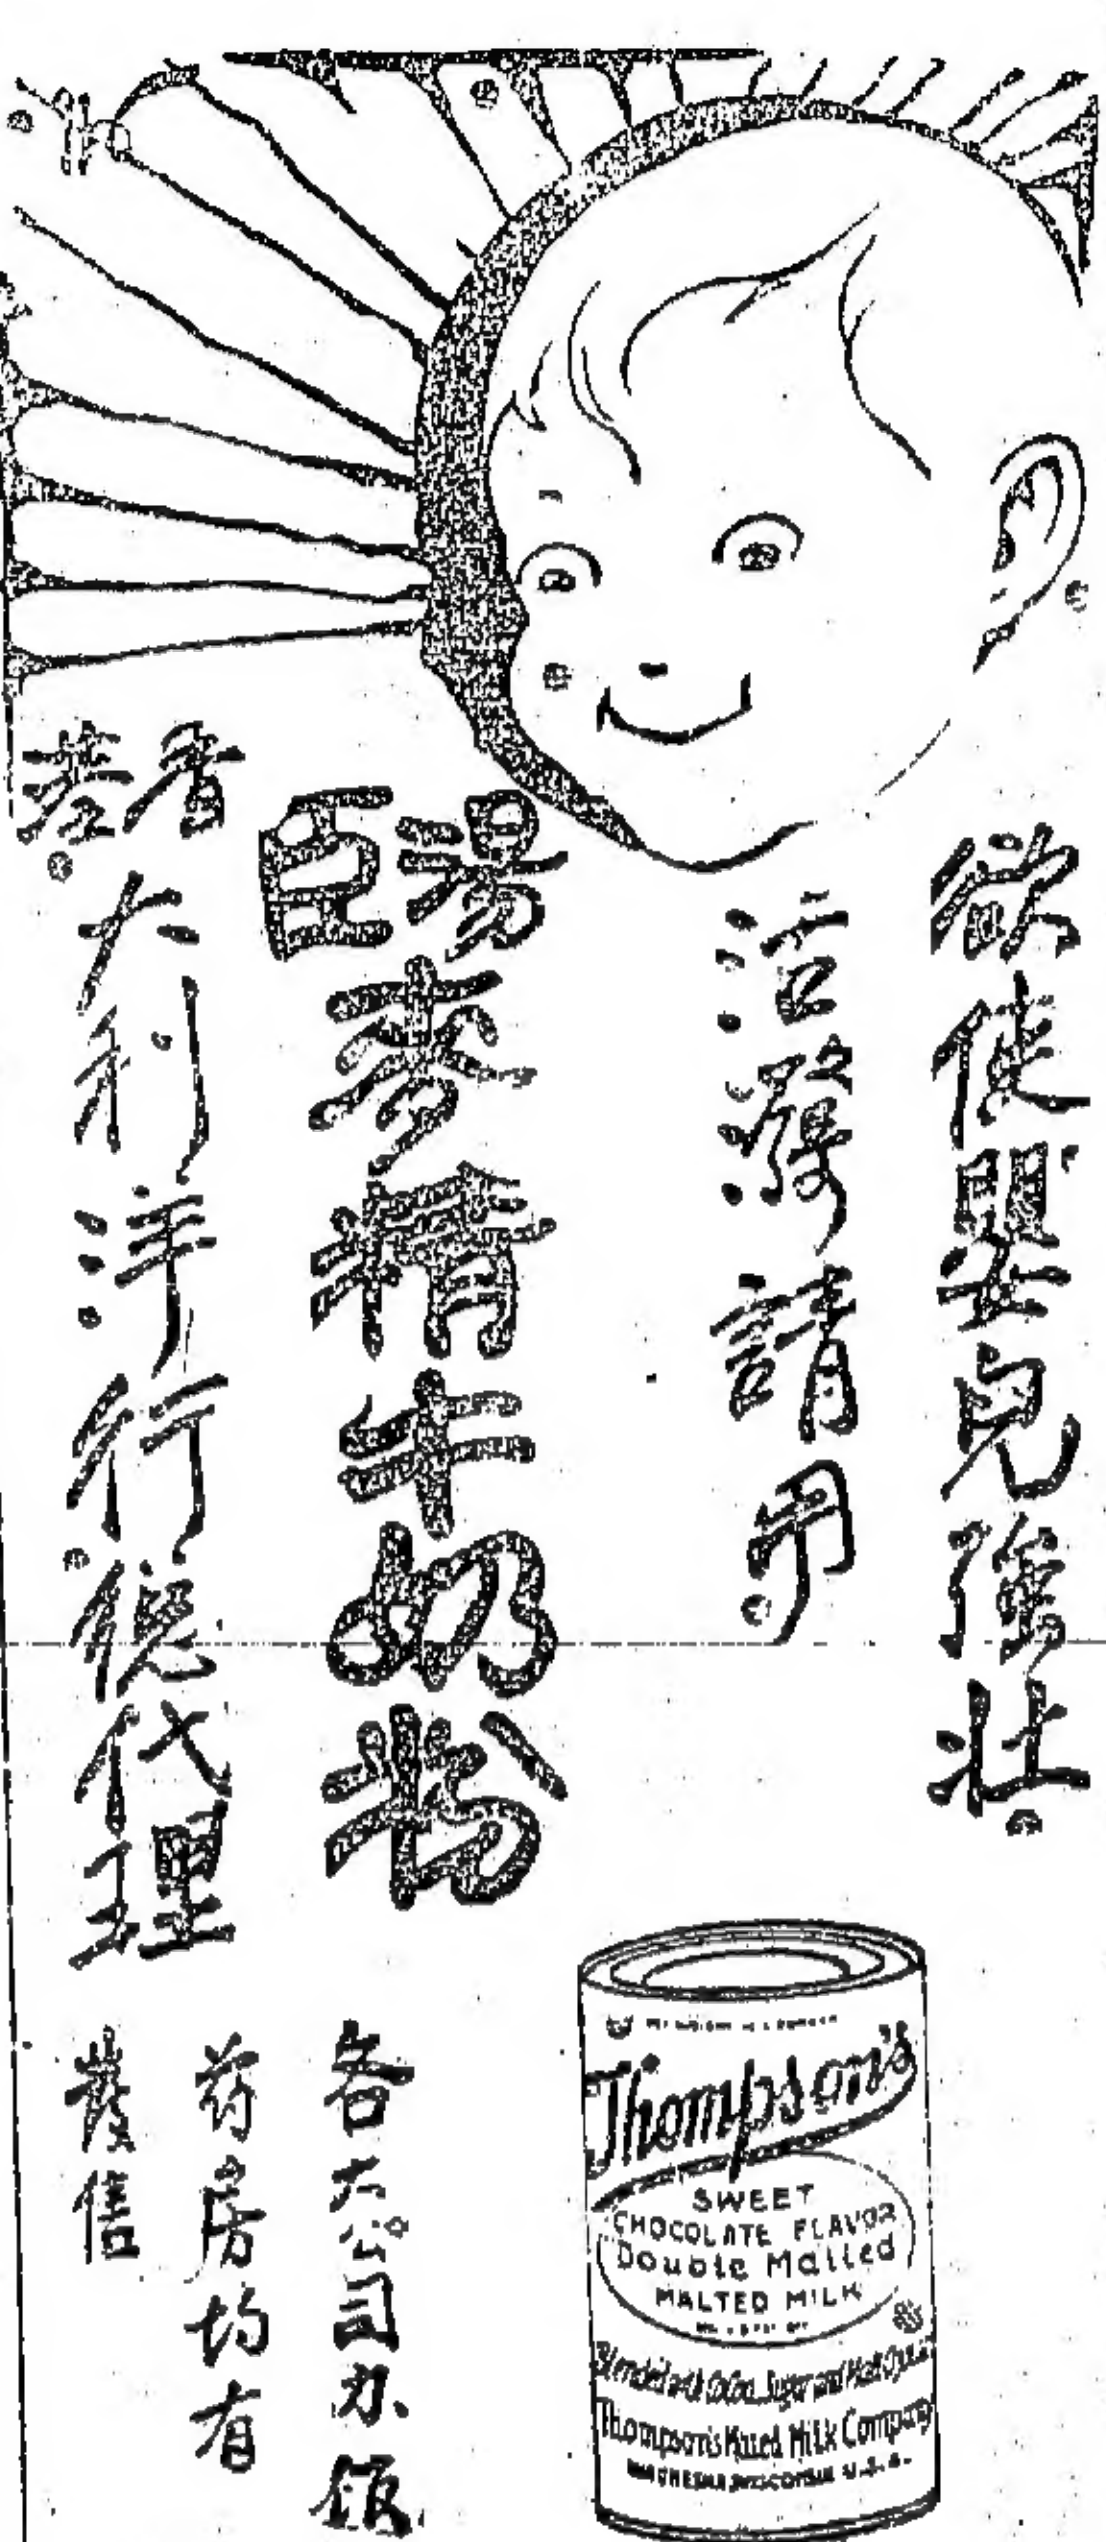 欲使嬰兒強壯
活潑請用
湯臣麥精牛奶粉
香港大利洋行總代理
各大公司办館
药房均有
發售
Thompson's
SWEET
CHOCOLATE FLAVOR
Double Malted
MALTED MILK
Blended with Cocoa, Sugar and Malt
Thompson's Malted Milk Company
WAUKESHA, WISCONSIN U.S.A.